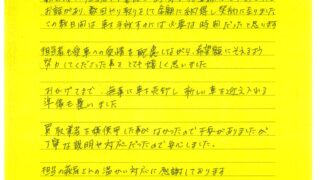 お話があり、数回やり取りして金額に納得し契約に至りました
この数日間は車を手放すのには必要な時間だったと思います
担当者も愛車への愛情を配慮しながら、希望額にそえるよう
努力してくださった事とても嬉しく思いました
おかげさまで、無事に車を売却し新しい車を迎え入れる
準備も整いました
買取業者を使用した事がなかったので不安がありましたが
丁寧な説明や対応だったので安心しました。
担当の 温かい対応に感謝しております